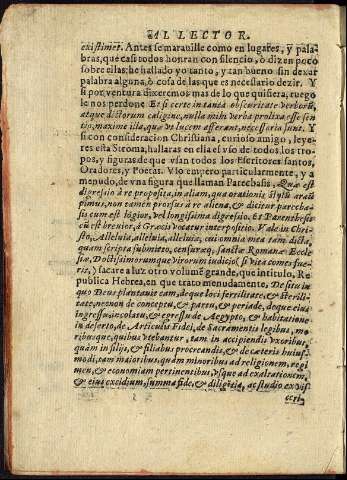 AL LECTOR.
existimet. Antes se marauille como en lugares, y pala-
bras, que casi todos honran con silencio, ò dizen poco
sobre ellas; he hallado yo tanto, y tan bueno sin dexar
palabra alguna, ò cosa de las que es necessario dezir. Y
si por ventura dixeremos mas de lo que quisiera, ruego
le nos perdone Et si certe in tanta obscuritate verborũ,
atque dictorum caligine, nulla mihi verba prolixa esse sen
tio, maxime illa, quæ vt lucem afferant, necessaria sunt. Y
si con consideracion Christiana, curioso amigo, leye-
res esta Stroma, hallaras en ella el vso de todos los tro-
pos, y figuras de que vsan todos los Escritores santos,
Oradores, y Poetas. Vso empero particularmente, y a
menudo, de vna figura que llaman Parecbasis, Quæ est
digressio à re proposita, in aliam, quæ orationis
pimus, non tamen prorsus à re aliena, & dicitur parecba-
sis cum est logior, vel longissima digressio. Et Parenthesis
cũ est breuior, à Græcis vocatur interpositio. Vale in Chri-
sto, Alleluia, alleluia, alleluia, cui omnia mea tam dicta,
quam scripta submitto, censuræq, sanctæ Romanæ Eccle
sia, Doctissimorumque virorum iudicio (si vita comes fue-
rit,) sacare a luz otro volumẽ grande, que intitulo, Re
publica Hebrea, en que trato menudamente, De situ in
quo Deus plantauit eam, deque loci fertilitate & sterili-
tate, necnon de conceptu, & partu, & periode, deque eius
ingressu, incolatu, & egressu de Aegypto, & habitatione
in deserto, de Articulis Fidei, de Sacramentis legibus, mo
ribusque, quibus vtebantur, tam in accipiendis vxoribus,
quàm in filijs, & filiabus procreandis, & de cæteris huius-
modi, tam maioribus, quàm minoribus ad religionem, regi
men, & economiam pertinentibus, vsque ad exaltationem,
& eius excidium, summa fide, & diligẽtia, ac studio